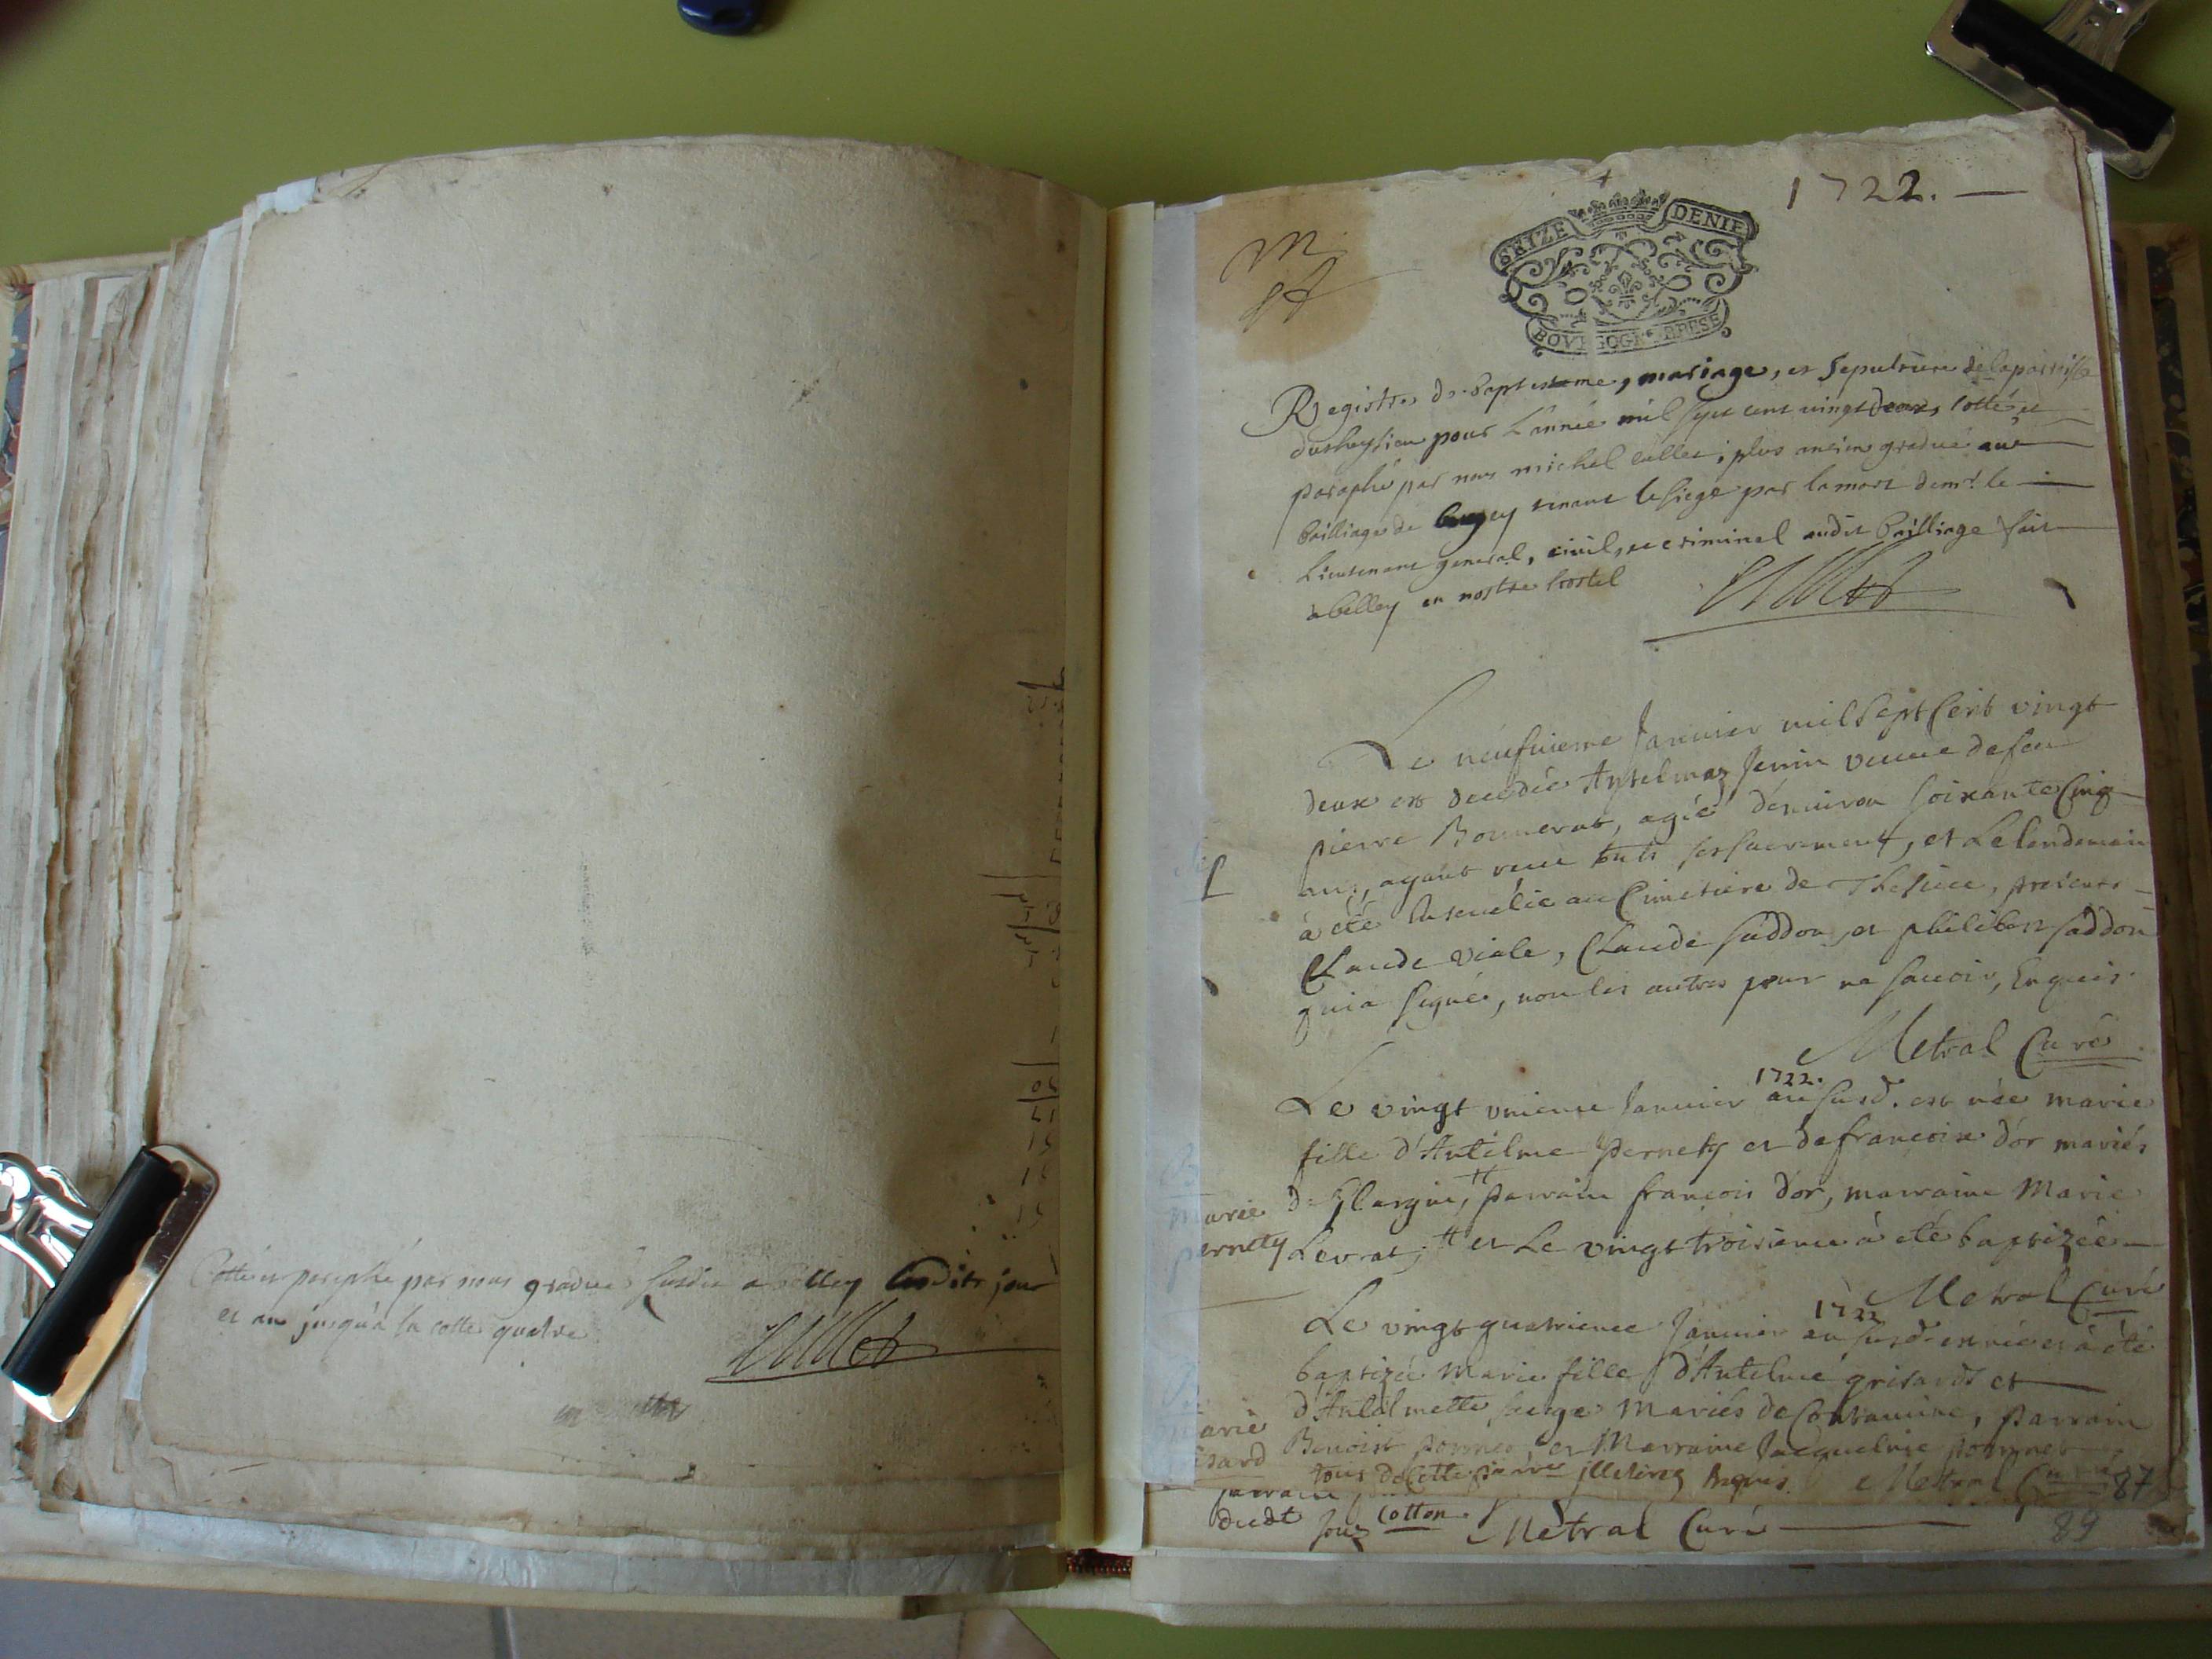 Cotté et paraphé par nous gradué susdit a belley lesdits jour
et an jusqu'a la cotte quatre
Cullet
1722.
SEIZE DENIE
BOVRGOGNE BRESE
Registres de baptesme, mariage, et sepulture de la parroisse
pour L'année mil sept cent vingt deux, cotté et
paraphé par nous michel cullet, plus ancien gradué au
bailliage de bugey tenant le siege par la mort de mr. le
Lieutenant general, civil, et criminel audit bailliage fait
a belley en nostre hostel
Cullet
Le neufvieme Janvier mil Sept Cent vingt
deux est decedée Antelmaz Jenin veuve de feu
pierre Bonnerat, agée d'environ soixante Cinq
ans, ayant receu touts ses sacrements, et Le lendemain
à été ensevelie au Cimetiere de presents
Claude viale, Claude saddon, et philibert saddon
qui a signé, non les autres pour ne savoir, Enquis.
Metral Curé
Sep
Le vingt unieme Janvier 1722. an susd. est née marie
fille d'Antelme pernety et de françoise d'or mariés
marie d'Ylargin, parrain françois d'or, marraine Marie
pernety Levrat, et Le vingt troisieme à été baptizée
Metral Curé
Le vingt quatrieme Janvier 1722 an susd. est née et à été
baptizée Marie fille d'Antelme grisard et
d'Antelmette Mariés de Contamine, parrain
marie Benoist pommet, et Marraine Jacqueline pommet
isard tous de cette parre illeterez Enquis. Metral Curé 87
parrain
dudt Jour Cotton. Metral Curé 89